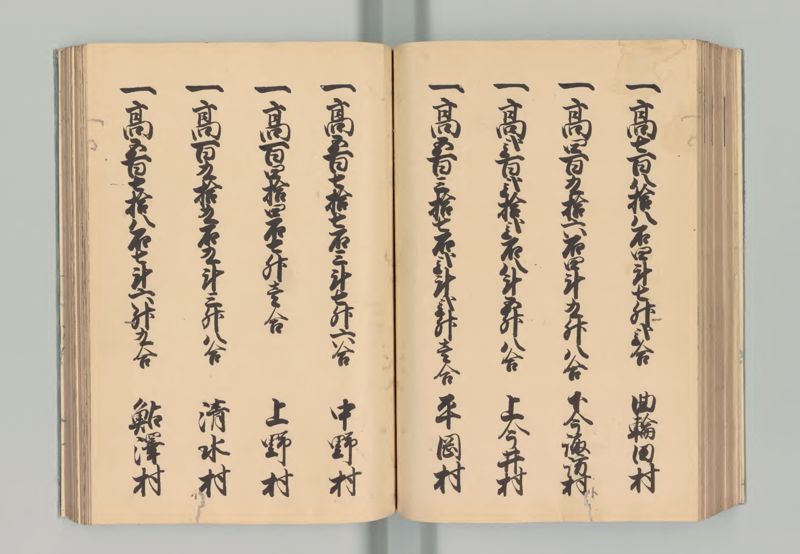 一高七百八拾八石四斗七升弐合 曲輪田村
一高四百九拾六石四斗九升八合 下今諏訪村
一高弐百弐拾弐石八斗五升八合 上今井村
一高五百三拾七石弐斗弐升壱合 平岡村
一高五百七拾七石三斗七升六合 中野村
一高百四拾四石七升壱合 上野村
一高百九拾九石九斗三升八合 清水村
一高五百七拾八石七斗六升九合 鮎澤村